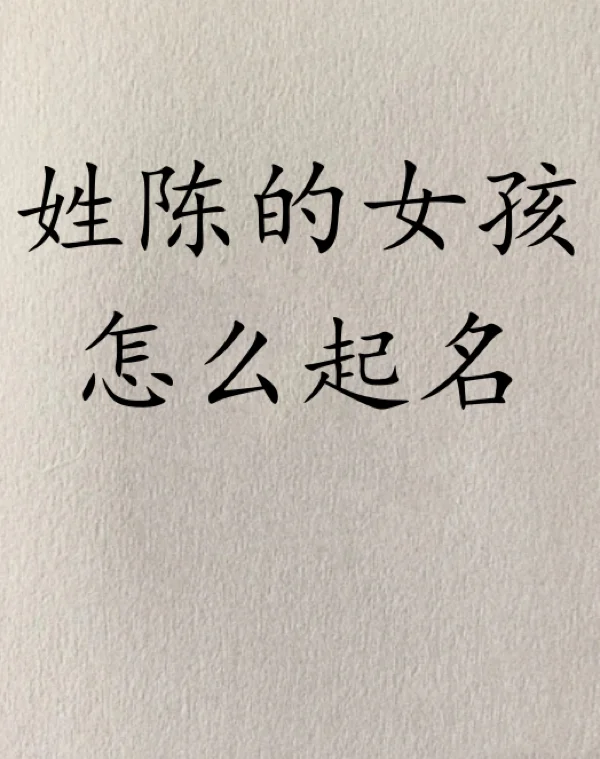 姓陈的女孩
怎么起名